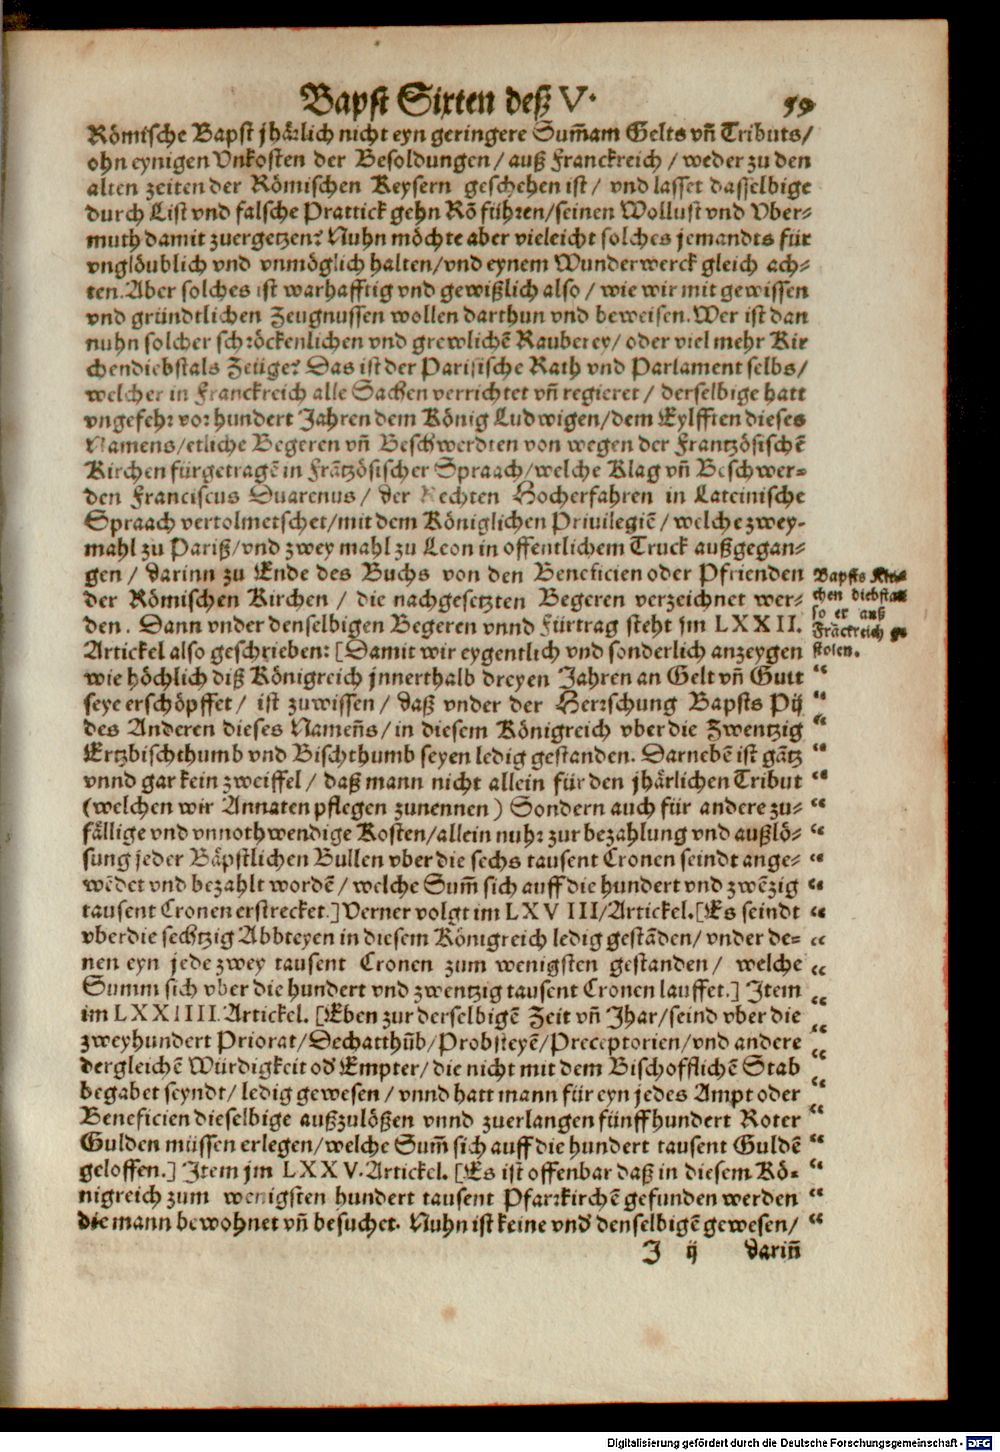 Bapst Sixten deß V. 59
Römische Bapst jhärlich nicht eyn geringere Sum̃am Gelts vñ Tributs/
ohn eynigen Vnkosten der Besoldungen/ auß Franckreich/ weder zu den
alten zeiten der Römischen Keysern geschehen ist/ vnd lasset dasselbige
durch List vnd falsche Prattick gehn Rõ führen/seinen Wollust vnd Vber-
muth damit zuergetzen? Nuhn möchte aber vieleicht solches jemandts für
vnglöublich vnd vnmöglich halten/vnd eynem Wunderwerck gleich ach-
ten. Aber solches ist warhafftig vnd gewißlich also/ wie wir mit gewissen
vnd gründtlichen Zeugnussen wollen darthun vnd beweisen. Wer ist dan
nuhn solcher schröckenlichen vnd grewlichẽ Rauberey/ oder viel mehr Kir
chendiebstals Zeüge? Das ist der Parisische Rath vnd Parlament selbs/
welcher in Franckreich alle Sachen verrichtet vñ regieret/ derselbige hatt
vngefehr vor hundert Jahren dem König Ludwigen/dem Eylfften dieses
Namens/etliche Begeren vñ Beschwerdten von wegen der Frantzösischẽ
Kirchen fürgetragẽ in Frãtzösischer Spraach/welche Klag vñ Beschwer-
den Franciscus Duarenus/ der Rechten Hocherfahren in Lateinische
Spraach vertolmetschet/mit dem Königlichen Priuilegiẽ/ welche zwey-
mahl zu Pariß/vnd zwey mahl zu Leon in offentlichem Truck außgegan-
gen/ darinn zu Ende des Buchs von den Beneficien oder Pfrienden
der Römischen Kirchen/ die nachgesetzten Begeren verzeichnet wer-
den. Dann vnder denselbigen Begeren vnnd Fürtrag steht jm LXXII.
Artickel also geschrieben: [Damit wir eygentlich vnd sonderlich anzeygen
wie höchlich diß Königreich jnnerthalb dreyen Jahren an Gelt vñ Gutt
seye erschöpffet/ ist zuwissen/ daß vnder der Herrschung Bapsts Pij
des Anderen dieses Nameñs/in diesem Königreich vber die Zwentzig
Ertzbischthumb vnd Bischthumb seyen ledig gestanden. Darnebẽ ist gãtz
vnnd gar kein zweiffel/ daß mann nicht allein für den jhärlichen Tribut
(welchen wir Annaten pflegen zunennen) Sondern auch für andere zu-
fällige vnd vnnothwendige Kosten/allein nuhr zur bezahlung vnd außlö-
sung jeder Bäpstlichen Bullen vber die sechs tausent Cronen seindt ange-
wẽdet vnd bezahlt wordẽ/ welche Sum̃ sich auff die hundert vnd zwẽzig
tausent Cronen erstrecket.] Verner volgt im LXVIII/Artickel. [Es seindt
vber die sechtzig Abbteyen in diesem Königreich ledig gestãden/ vnder de-
nen eyn jede zwey tausent Cronen zum wenigsten gestanden/ welche
Summ sich vber die hundert vnd zwentzig tausent Cronen lauffet.] Item
im LXXIIII. Artickel. [Eben zur derselbigẽ Zeit vñ Jhar/seind vber die
zweyhundert Priorat/Dechatthũb/Probsteyẽ/Preceptorien/vnd andere
dergleichẽ Würdigkeit od' Empter/die nicht mit dem Bischofflichẽ Stab
begabet seyndt/ledig gewesen/ vnnd hatt mann für eyn jedes Ampt oder
Beneficien dieselbige außzulößen vnnd zuerlangen fünffhundert Roter
Gulden müssen erlegen/welche Sum̃ sich auff die hundert tausent Guldẽ
geloffen.] Item jm LXXV. Artickel. [Es ist offenbar daß in diesem Kö-
nigreich zum wenigsten hundert tausent Pfarrkirchẽ gefunden werden
die mann bewohnet vñ besuchet. Nuhn ist keine vnd' denselbigẽ gewesen/
J ij dariñ
Bapsts Kir-
chen diebstal
so er auß
Frãckreich ge
stolen.
Digitalisierung gefördert durch die Deutsche Forschungsgemeinschaft - DFG